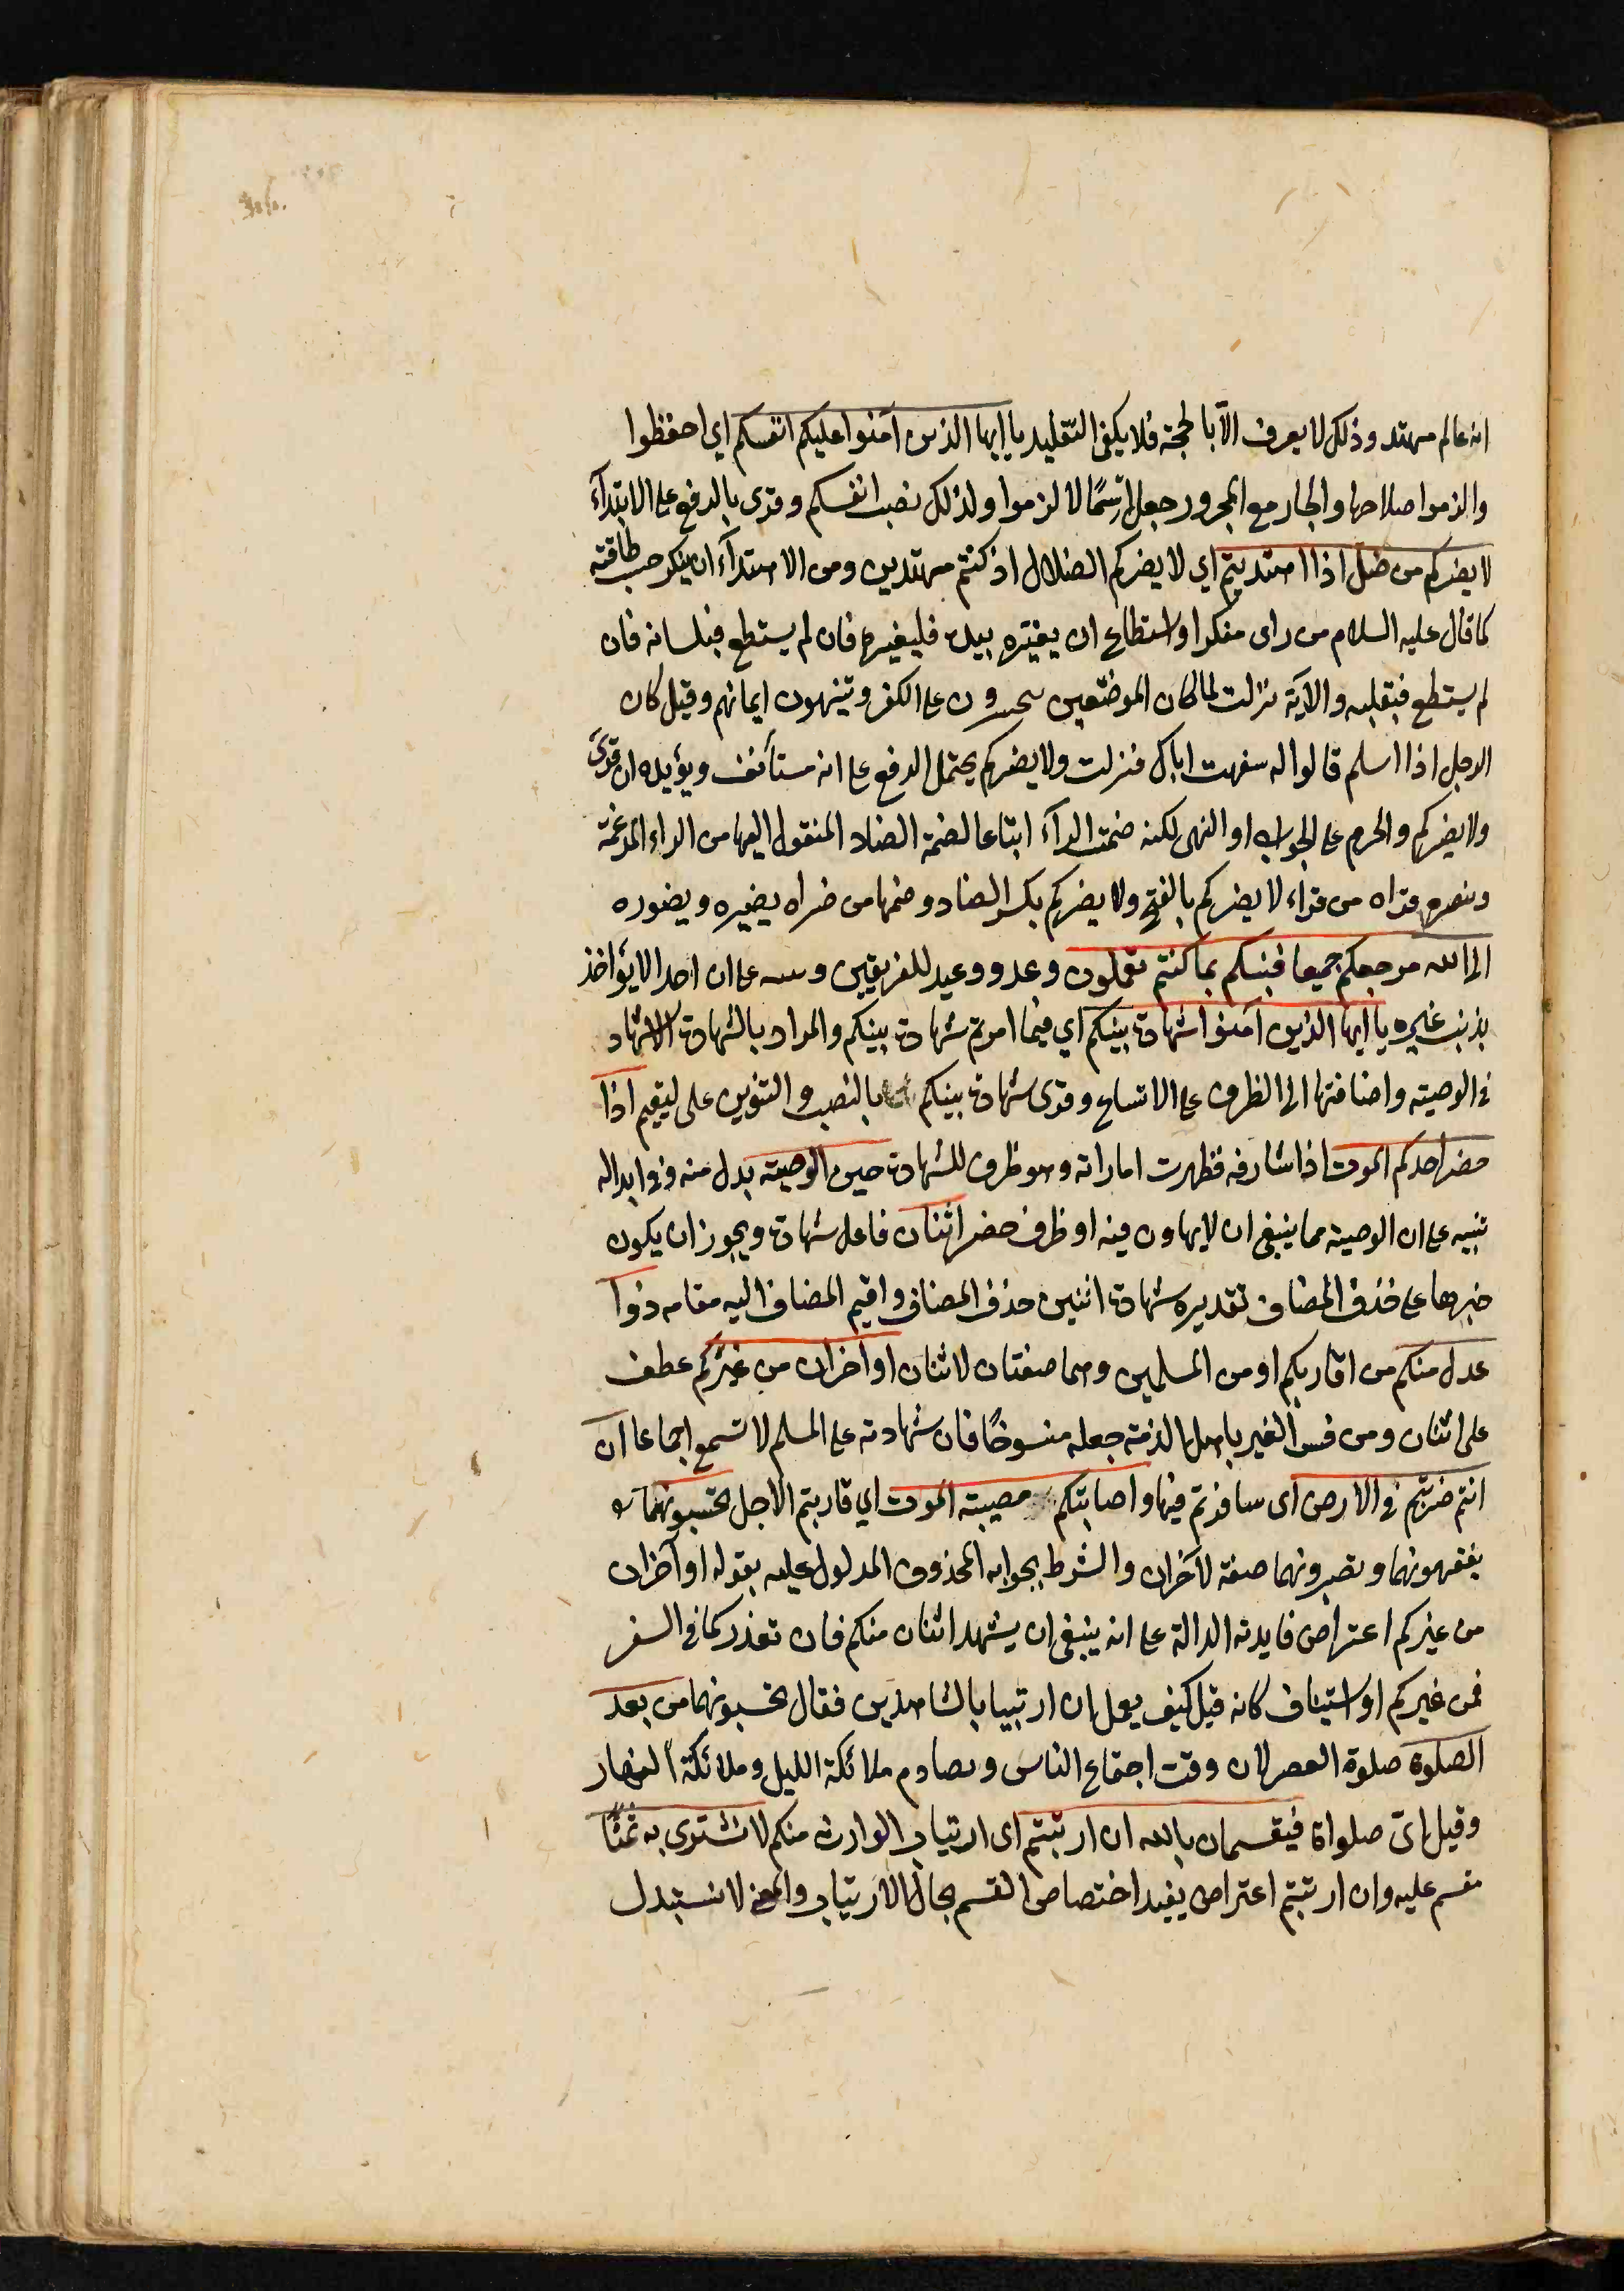 انه عالم مهتد وذلك لا يعرف الّا بالحجة فلا يكفى التقليد يا ايها الذين آمنوا عليكم انفسكم اي احفظوا
والزموا صلاحها والجار مع المجرور جعل اسمًا لالزموا ولذلك نصب انفسكم وقرى بالرفع على الابتدآء
لا يضركم من ضل اذا اهتديتم اي لا يضركم الضلال اذ كنتم مهتدين ومن الاهتدآء ان ينكر حسب طاقته
كما قال عليه السلام من راى منكرا واستطاع ان يغيّره بيده فليغيره فان لم يستطع فبلسانه فان
لم يستطع فبقلبه والاية نزلت لما كان المؤمنين يتحسرون على الكفر و تينهون ايمانهم وقيل كان
الرجل اذا اسلم قالوا له سفهت اباك فنزلت ولا يضركم يحتمل الرفع على انه مستأنف ويؤيده ان قرئ
ولا يضيركم والجزم على الجواب او النهى لكنه ضمت الرآء اتباعا لضمة الضاد المنقولة اليها من الراء المدغمة
وينصره قراه من قراء لا يضركم بالفتح ولا يضركم بكسر الضاد وضمها من ضراه يضيره ويضوره
الى الله مرجعكم جميعا فينبئكم بما كنتم تعملون وعد ووعيد للفريقين و على ان احدا لا يؤاخذ
بذنب غيره يا ايها الذين آمنوا شهادة بينكم اي فيما امرتم شهادة بينكم والمراد بالشهادة الاشهاد
فى الوصيته واضافتها الى الظرف على الاتساع وقرى شهادة بينكم بالنصب والتنوين على ليقيم اذا
حضر احدكم الموت اذا شارفه فظهرت اماراته وهو ظرف للشهادة حين الوصيته بدل منه وفى ابداله
تنبيه على ان الوصيته مما ينبغى ان لا يهاون فيه او ظرف حضر اثنان فاعل شهادة ويجوز ان يكون
خبرها على حذف المضاف تقديره شهادة اثنين حذف المضاف واقيم المضاف اليه مقامه ذوا
عدل منكم من اقاربكم او من المسلمين وهما صفتان لاثنان او آخران من غيركم عطف
على اثنان ومن فسر الغير باهل الذمته جعله منسوخًا فان شهادته على المسلم لا تسمع اجماعا ان
انتم ضربتم فى الارض اى سافرتم فيها واصابتكم مصيبته الموت اي قاربتم الاجل تحبسونهما
يقفونهما ويصبرونهما صفة لآخران والشرط بجوابه المحذوف المدلول عليه بقوله او آخران
من غيركم اعتراض فايدته الدالة على انه ينبغى ان يشهد اثنان منكم فان تعذر كما فى السفر
فمن غيركم او استيناف كانه قيل كيف يعمل ان ارتبيا بالشاهدين فقال تحبسونهما من بعد
الصلوة صلوة العصر لان وقت اجتماع الناس وتصادم ملائكة الليل وملائكة النهار
وقيل اىّ صلواة فيقسمان بالله ان ارتبتم اى ارتياب الوارث منكم لا نشترى به ثمنًا
مقسم عليه وان ارتبتم اعتراض يفيد اختصاص القسم بحال الارتياب والمعنى لا نستبدل